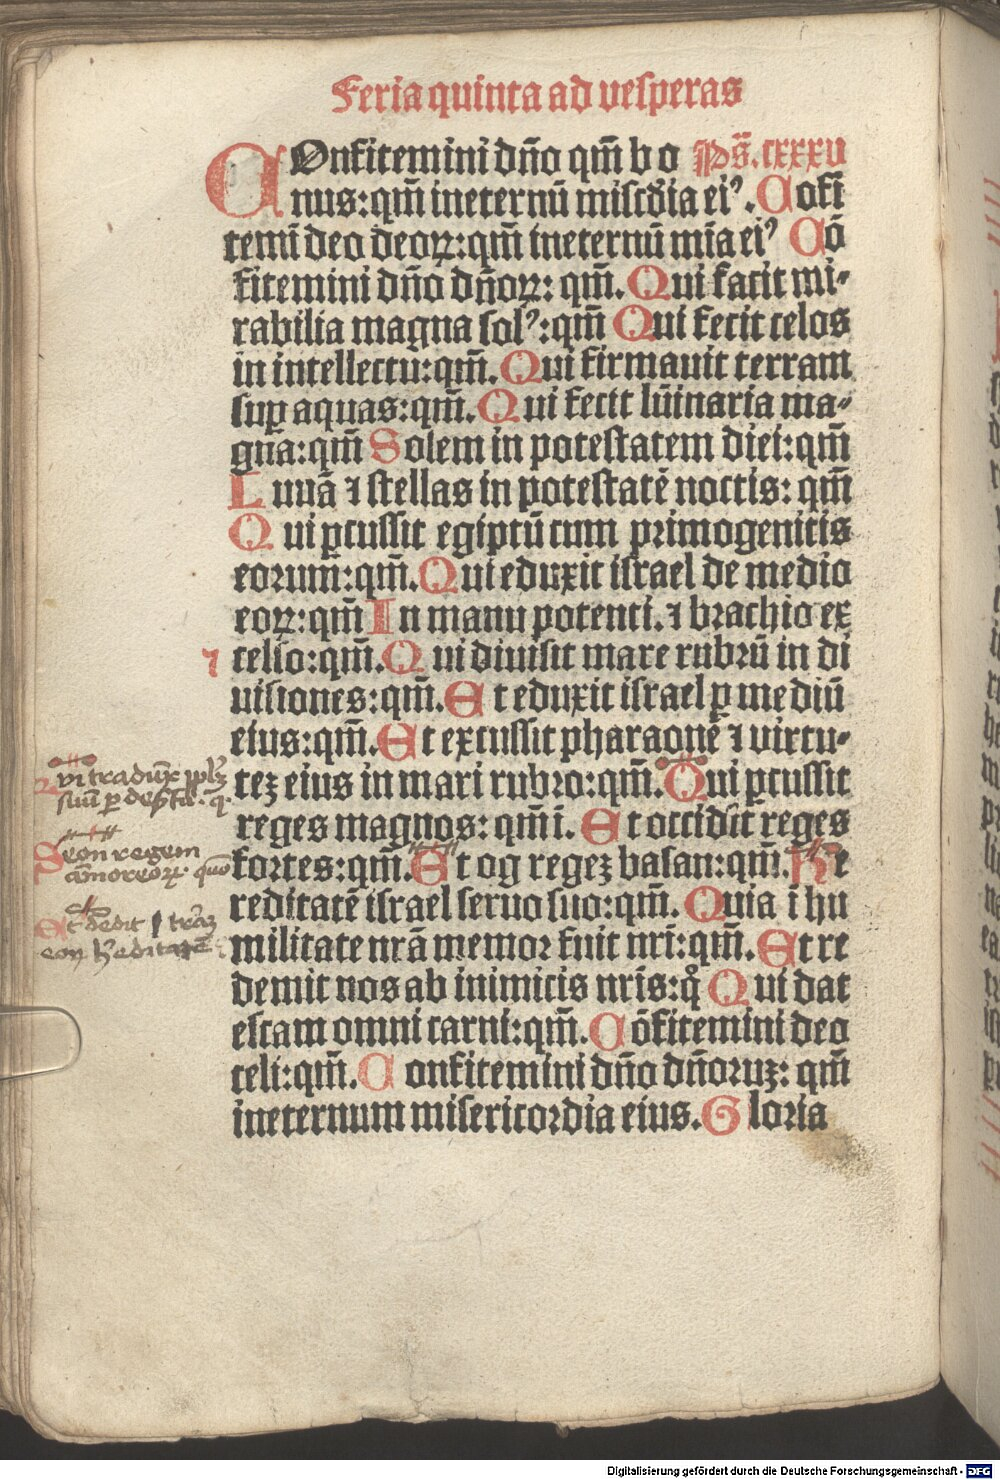 Feria quinta ad vesperas
COnfitemini dn̄o qm̄ bo Ps̄.cxxxv
nus:qm̄ ineternū misc̄dia eiꝰ. Cofī
temī deo deoꝝ:qm̄ ineternū mīa eiꝰ Cō
fitemini dn̄o dn̄oꝝ: qm̄. Qui facit mi-
rabilia magna solꝰ:qm̄ Qui fecit celos
in intellectu:qm̄. Qui firmauit terram
suꝑ aquas:qm̄. Qui fecit lūinaria ma-
gna:qm̄ Solem in potestatem diei:qm̄
Lunā ⁊ stellas in potestatē noctis: qm̄
Qui ꝑcussit egiptū cum primogenitis
eorum̄:qm̄. Qui eduxit israel de medio
eoꝝ:qm̄ In manu potenti. ⁊ brachio ex
celso:qm̄. Qui diuisit mare rubrū in di
uisiones:qm̄. Et eduxit israel ꝑ mediū
eius:qm̄. Et excussit pharaonē ⁊ virtu-
teꝫ eius in mari rubro:qm̄. Qui ꝑcussit
reges magnos: qm̄ i. Et occidit reges
fortes:qm̄. Et og regeꝫ basan:qm̄. He
reditatē israel seruo suo:qm̄. Quia ī hu
militate nr̄ā memor fuit nri:qm̄. Et re
demit nos ab inimicis nr̄is:qͦ Qui dat
escam omni carni:qm̄. Cōfitemini deo
celi:qm̄. Confitemini dn̄o dn̄oruꝫ: qm̄
ineternum misericordia eius. Gloria
⁊
Qui traduxͭ pplꝫ
suū ꝑ desertū. q.
Seon regem
amoreoꝝ. quō
Et dedit terā
eoꝝ hereditatē
Digitalisierung gefördert durch die Deutsche Forschungsgemeinschaft - DFG